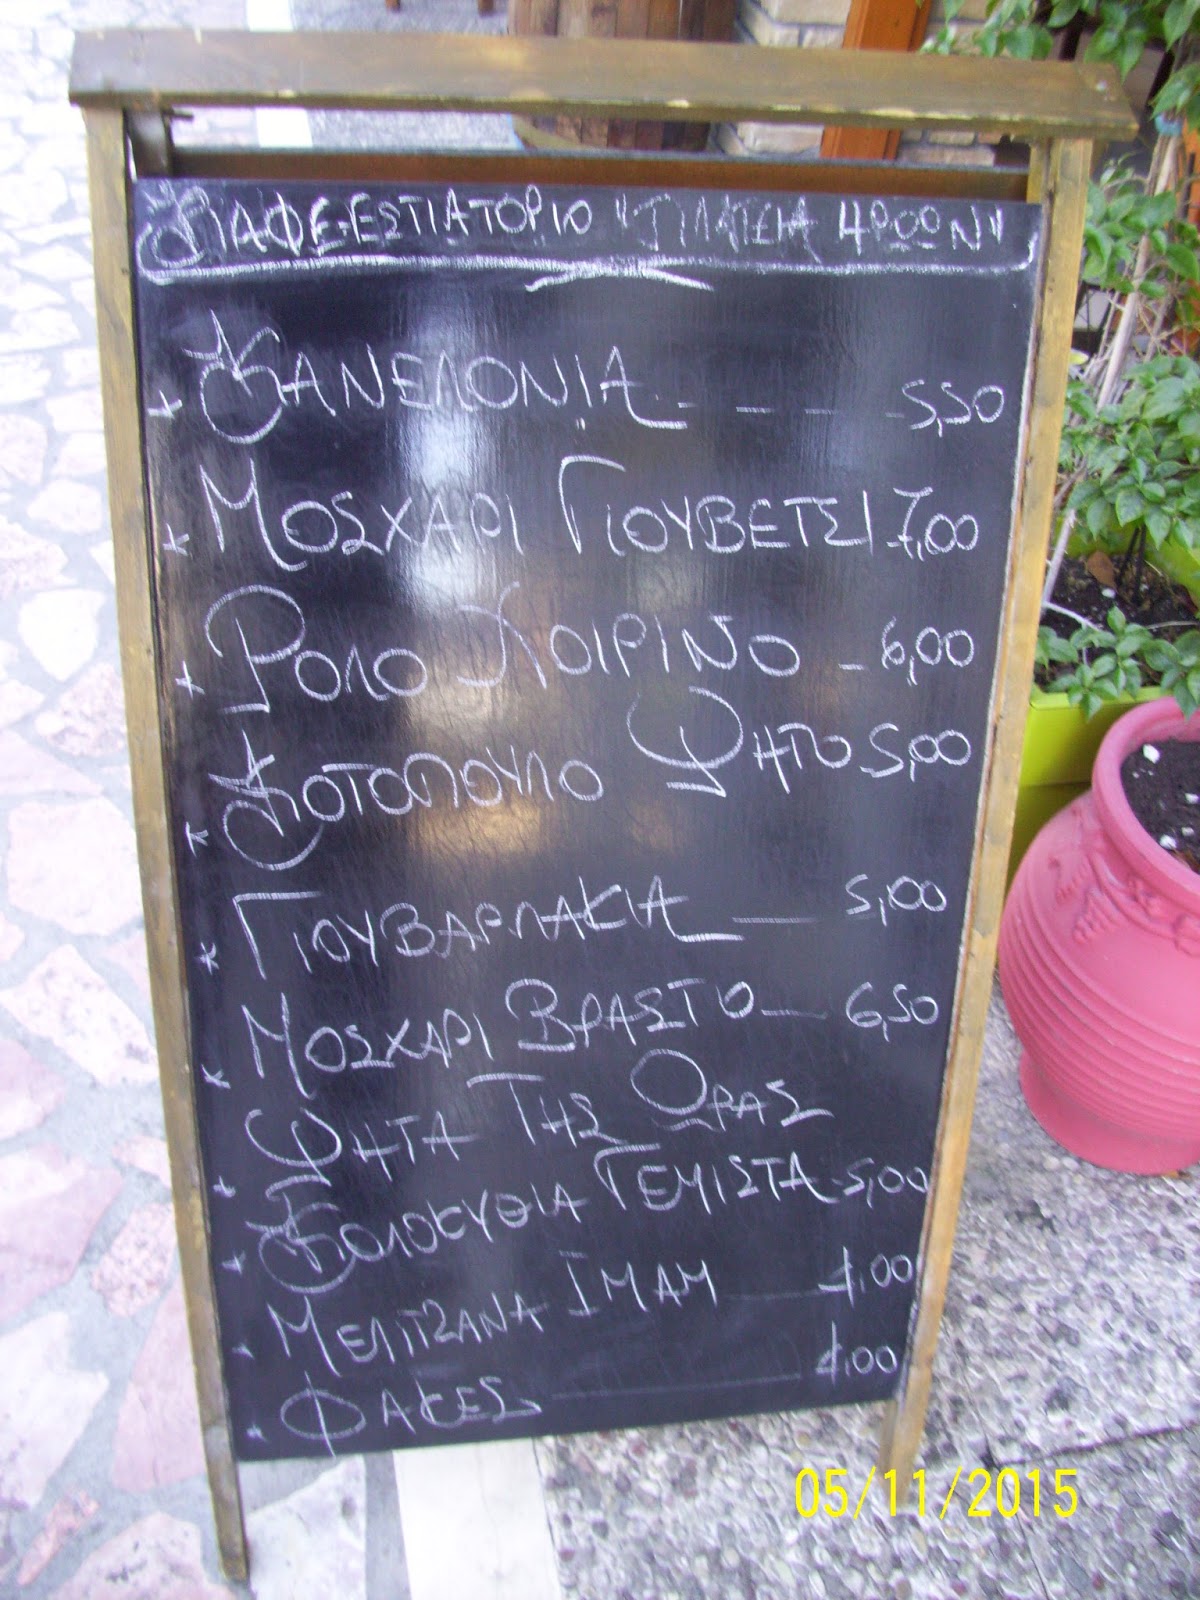 ΚΑΦΕ-ΕΣΤΙΑΤΟΡΙΟ "ΠΛΑΤΕΙΑ ΗΡΩΩΝ"
* ΚΑΝΕΛΟΝΙΑ - - - - 5,50
* ΜΟΣΧΑΡΙ ΓΙΟΥΒΕΤΣΙ 7,00
* ΡΟΛΟ ΧΟΙΡΙΝΟ - 6,00
* ΚΟΤΟΠΟΥΛΟ ΨΗΤΟ 5,00
* ΓΙΟΥΒΑΡΛΑΚΙΑ — 5,00
* ΜΟΣΧΑΡΙ ΒΡΑΣΤΟ — 6,50
* ΨΗΤΑ ΤΗΣ ΩΡΑΣ
* ΚΟΛΟΚΥΘΙΑ ΓΕΜΙΣΤΑ - 5,00
* ΜΕΛΙΤΖΑΝΑ ΙΜΑΜ — 4,00
* ΦΑΚΕΣ — 4,00
05/11/2015